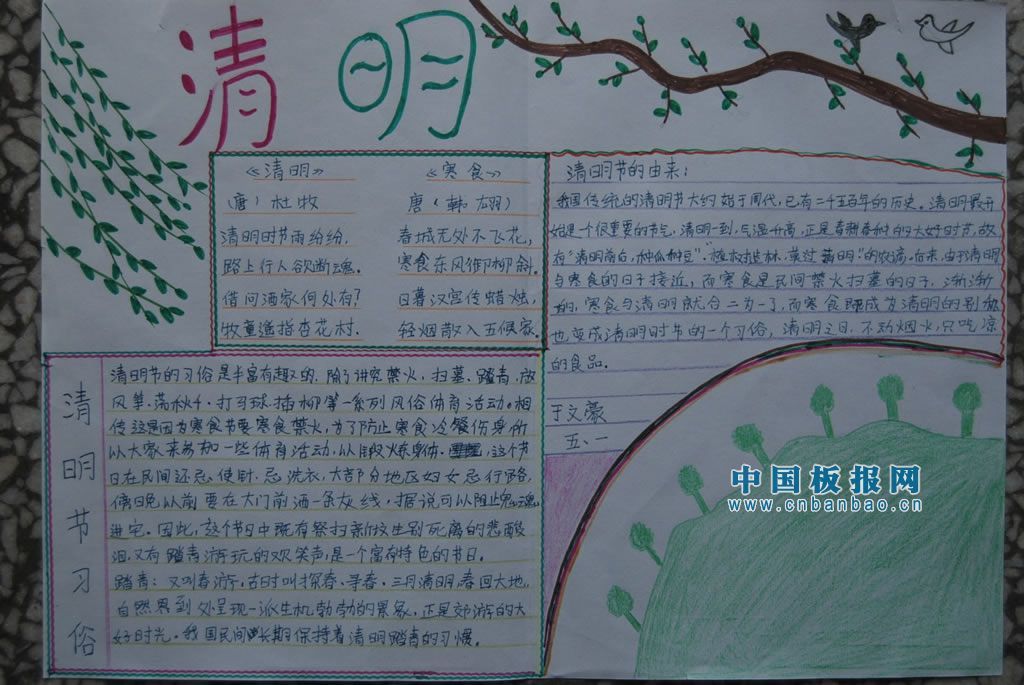 清明
《清明》
(唐) 杜牧
清明时节雨纷纷,
路上行人欲断魂。
借问酒家何处有?
牧童遥指杏花村.
《寒食》
唐(韩翃)
春城无处不飞花,
寒食东风御柳斜.
日暮汉宫传蜡烛,
轻烟散入五侯家.
清明节的由来:
我国传统的清明节大约始于周代,已有二千五百年的历史。清明最开
始是个很重要的节气,清明一到,气温升高,正是春耕春种的大好时节,故
有“清明前后,种瓜种豆”“植树造林,莫过清明”的农谚,后来,由于清明
与寒食的日子接近,而寒食是民间禁火扫墓的日子,渐渐
的,寒食与清明就合二为一了,而寒食既成为清明的别称
也变成清明时节的一个习俗,清明之日,不动烟火,只吃凉
的食品。
于文豪
五、一
清明节习俗
清明节的习俗是丰富有趣的,除了讲究禁火,扫墓、踏青,放
风筝、荡秋千、打马球插柳等一系列风俗体育活动。相
传这是因为寒食节要寒食禁火,为了防止寒食冷餐伤身,所
以大家来参加一些体育活动,以锻炼身体.这个节
日在民间还忌使针,忌洗衣,大部分地区妇女忌行路,
傍晚以前要在大门前洒一条灰线,据说可以阻止鬼魂
进宅。因此,这个节中既有祭扫新坟生别死离的悲酸
泪,又有踏青游玩的欢笑声,是一个富有特色的节日。
踏青:又叫春游,古时叫探春、寻春、三月清明,春回大地,
自然界到处呈现一派生机勃勃的景象,正是郊游的大
好时光。我国民间长期保持着清明踏青的习惯。
中国板报网
www.cnbanbao.cn